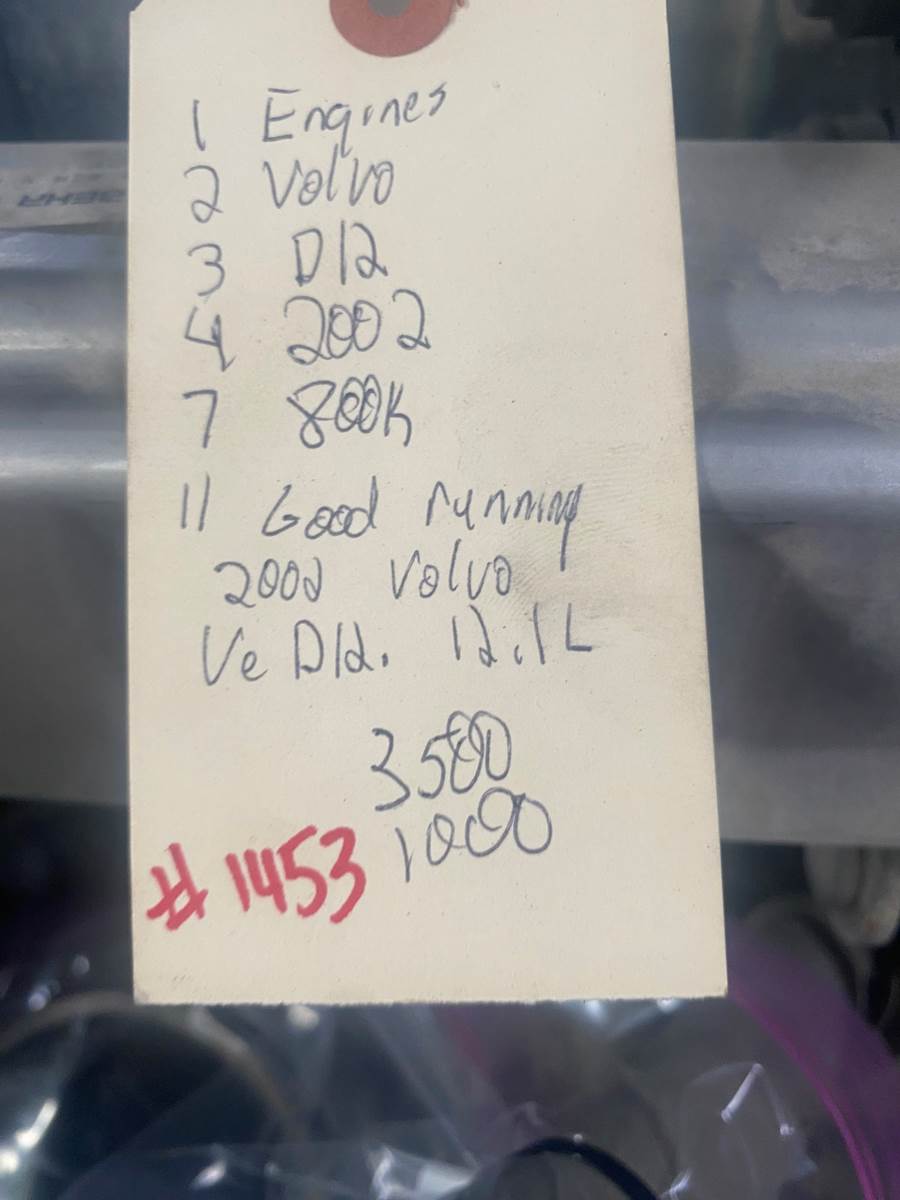 1 Engines
2 Volvo
3 D12
4 2002
7 800K
11 Good running
2002 Volvo
Ve D12. 12.1L
3500
1000
#1453